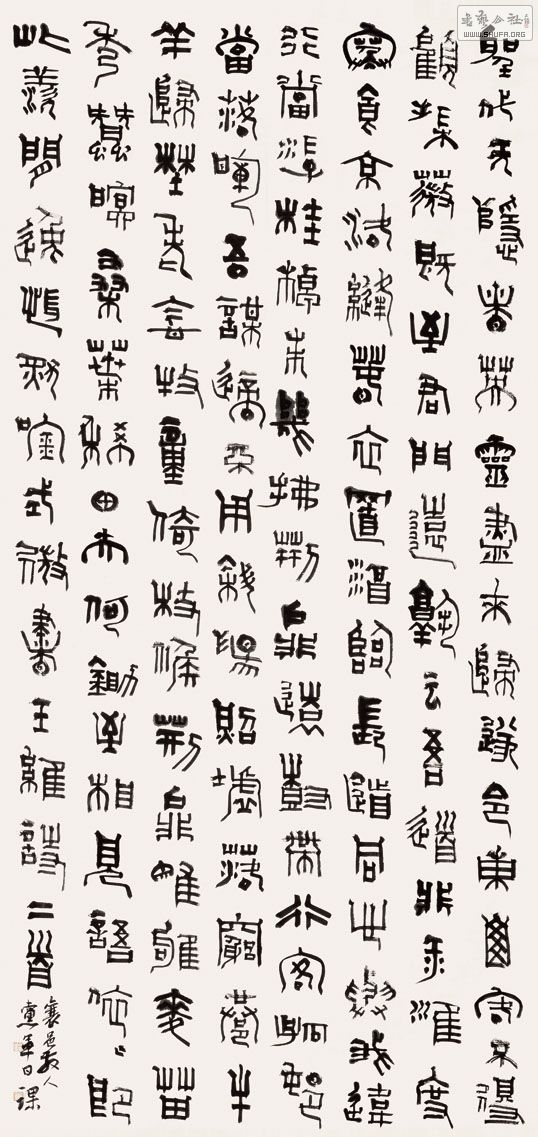 聖代无隱者英靈盡來歸遂令東山客不得
顧采薇既至君門遠孰云吾道非江淮度
寒食京洛縫春衣置酒臨長道同心與我違
行當浮桂棹未幾拂荊扉遠樹帶行客孤城
當落暉吾謀適不用斜陽照墟落窮巷牛
羊歸野老念牧童倚杖候荊扉雉雊麥苗
秀蠶眠桑葉稀田夫何鋤至相見語依〻即
此羨閒逸悵然吟式微書王維詩二首
襄邑散人
黨軍日課
WWW.SHUFA.ORG